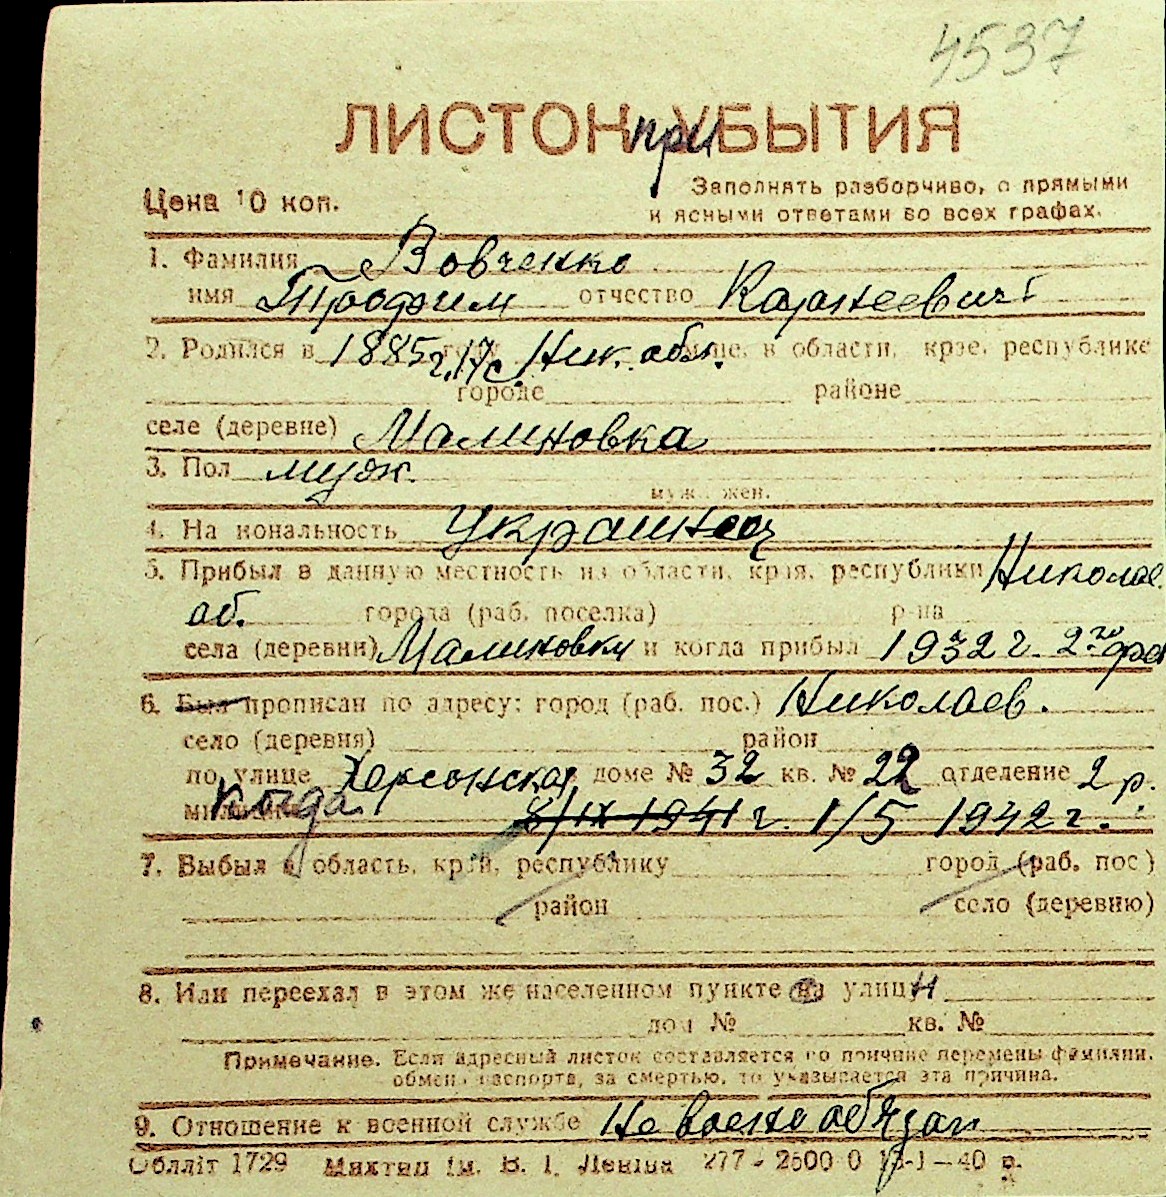 4537
ЛИСТОК при УБЫТИЯ
Цена 10 коп.
Заполнять разборчиво, с прямыми
и ясными ответами во всех графах.
1. Фамилия Вовченко
имя Трофим отчество Карнеевич
2. Родился в 1885 году г. 17/с. Ник. обл. в области, крае, республике
городе районе
селе (деревне) Малиновка
3. Пол муж.
муж. жен.
4. Национальность Украинец
5. Прибыл в данную местность из области, края, республики Николае.
об. города (раб. поселка) р-на
села (деревни) Малиновки и когда прибыл 1932 г. 2го фев
6. Был прописан по адресу: город (раб. пос.) Николаев.
село (деревня) район
по улице Херсонская доме № 32 кв. № 22 отделение 2 р.
милиции Когда 8/IX 1941 г. 1/5 1942 г.
7. Выбыл в область, край, республику город (раб. пос)
район село (деревню)
8. Или переехал в этом же населенном пункте на улицу Н
дом № кв. №
Примечание. Если адресный листок составляется по причине перемены фамилии,
обмена паспорта, за смертью, то указывается эта причина.
9. Отношение к военной службе Не военнообязан
Обллiт 1729 Мiхтип iм. В. I. Ленiна 277 - 2500 0 13-I-40 р.